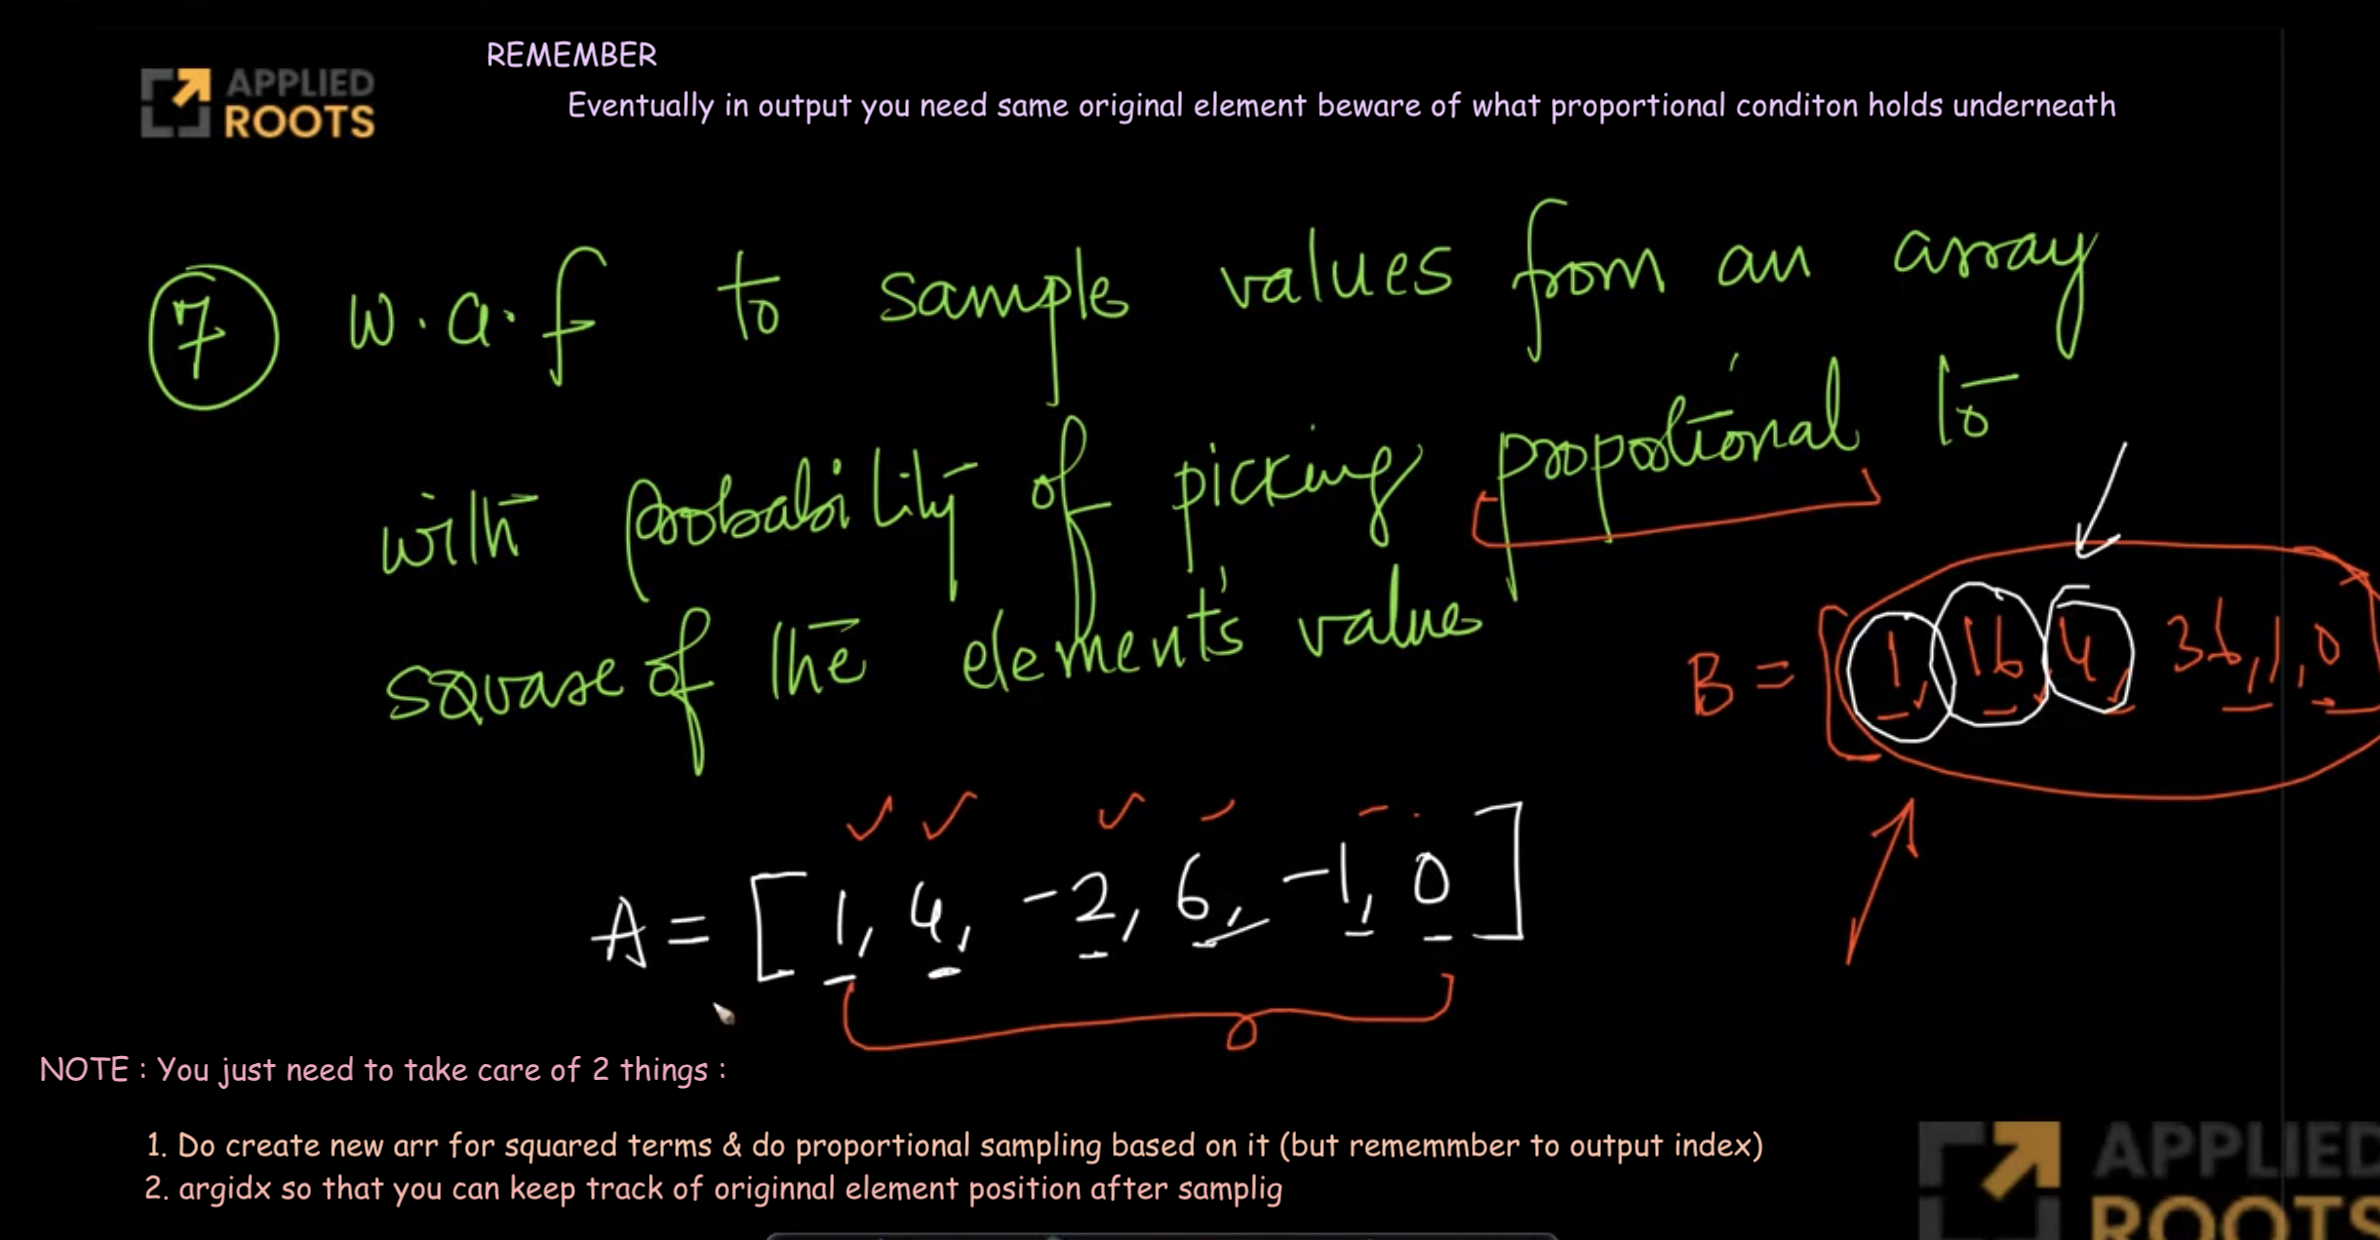 REMEMBER
APPLIED
ROOTS
Eventually in output you need same original element beware of what proportional conditon holds underneath
7 w.a.f to sample values from an array
with probability of picking propotional to
square of the element's value
B = [1, 16, 4, 36, 1, 0
A = [1, 4, -2, 6, -1, 0]
NOTE : You just need to take care of 2 things :
1. Do create new arr for squared terms & do proportional sampling based on it (but rememmber to output index)
2. argidx so that you can keep track of originnal element position after samplig
APPLIED
ROOTS